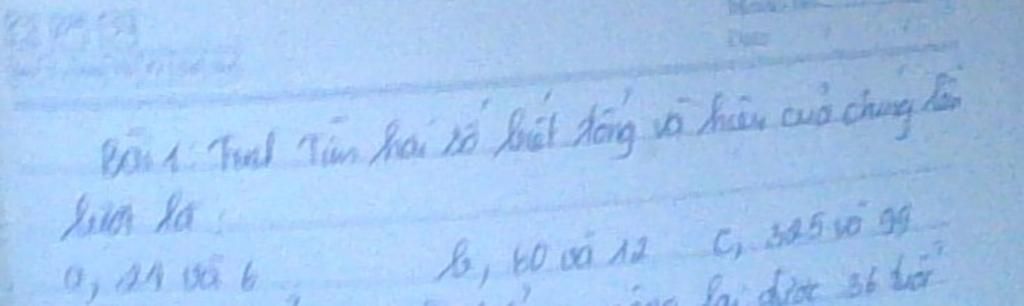 Bài 1: Tìm hai số biết tổng và hiệu của chúng lần
lượt là:
a, 24 và 6 b, 60 và 12 c, 325 và 99
lại được 36 tuổi